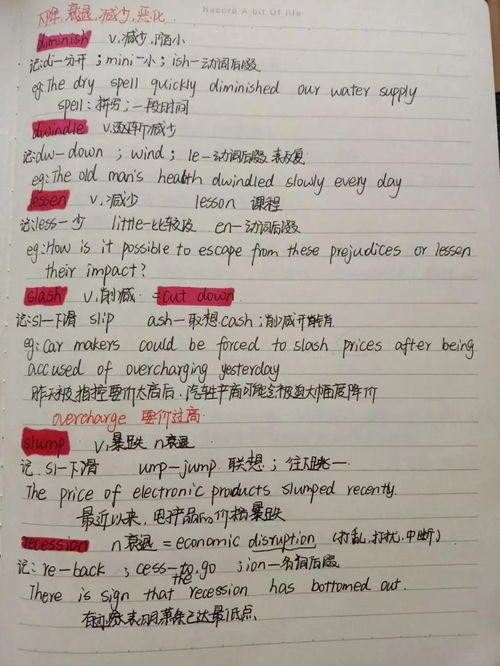 Record A bit Of life
下降,衰退,减少,恶化
diminish v.减少,缩小
记:di-分开;mini-小;ish-动词后缀
eg:The dry spell quickly diminished our water supply
spell:拼写;一段时间
dwindle v.逐渐减少
记:dw-down;wind;le-动词后缀 表反复
eg:The old man's health dwindled slowly every day
lessen v.减少 lesson 课程
记:less-少 little-比较级 en-动词后缀
eg:How is it possible to escape from these prejudices or lessen
their impact?
slash v.削减 =cut down
记:sl-下滑 slip ash-联想.cash;削减开销
eg:Car makers could be forced to slash prices after being
accused of overcharging yesterday
昨天被指控要价太高后,汽车生产商可能会被迫大幅度降价
overcharge 要价过高
slump v.暴跌 n衰退
记.sl-下滑 ump-jump 联想;往下跳一
The price of electronic products slumped recently.
最近以来,电子产品的价格暴跌
recession n衰退=economic disruption (打乱.打扰.中断)
记:re-back ;cess-to go ;ion-名词后缀
There is sign that the recession has bottomed out.
有迹象表明萧条已达最低点.